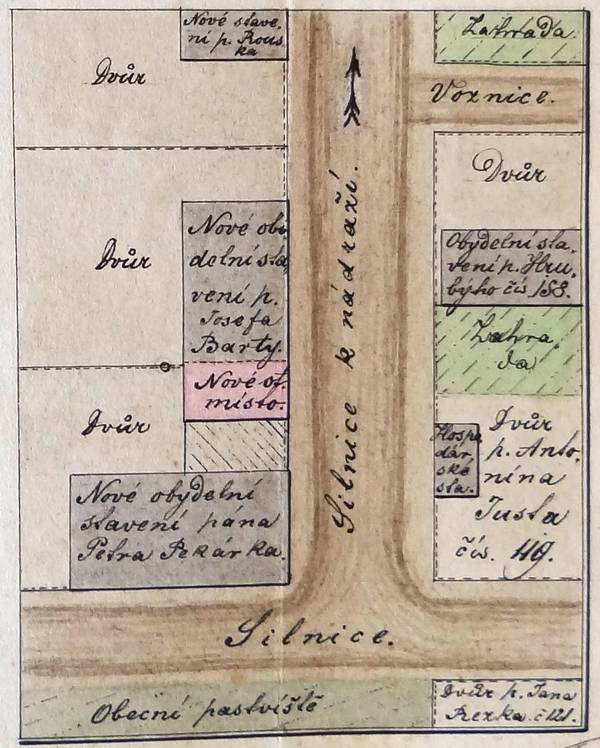 Nové stave-
ní p. Rous
ka
Zahrada
Dvůr
Voznice.
Dvůr
Nové oby
delní sta
vení p.
Josefa
Barty.
Dvůr
Obydelní sta-
vení p. Hru-
býho čís 188.
Silnice k nádraží.
Zahra
da
Nové st.
místo.
Dvůr
Hospo
dár-
ské
sta.
Dvůr
p. Anto-
nína
Justa
čís. 119.
Nové obydelní
stavení pána
Petra Pekárka.
Silnice.
Obecní pastviště
Dvůr p. Jana
Rezka. č 121.